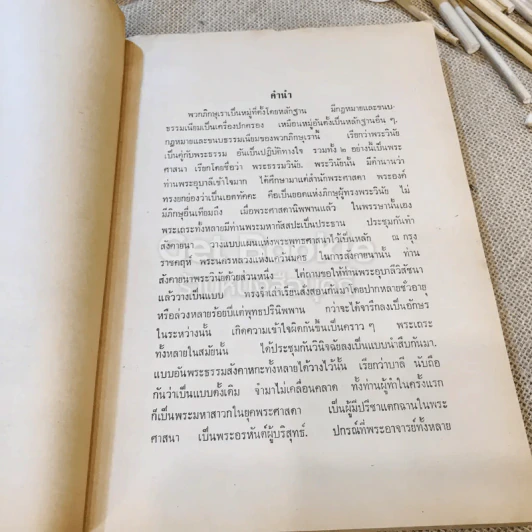 คำนำ
พวกภิกษุเราเป็นหมู่ที่ตั้งโดยหลักฐาน มีกฎหมายและขนบ-
ธรรมเนียมเป็นเครื่องปกครอง เหมือนหมู่อันตั้งเป็นหลักฐานอื่น ๆ.
กฎหมายและขนบธรรมเนียมของพวกภิกษุเรานี้ เรียกว่าพระวินัย
เป็นคู่กับพระธรรม อันเป็นปฏิบัติทางใจ รวมทั้ง ๒ อย่างนี้เป็นพระ
ศาสนา เรียกโดยชื่อว่า พระธรรมวินัย. พระวินัยนั้น มีตำนานว่า
ท่านพระอุบาลีเข้าใจมาก ได้ศึกษามาแต่สำนักพระศาสดา พระองค์
ทรงยกย่องว่าเป็นเอตทัคคะ คือเป็นยอดแห่งภิกษุผู้ทรงพระวินัย ไม่
มีภิกษุอื่นเทียมถึง เมื่อพระศาสดานิพพานแล้ว ในพรรษานั้นเอง
พระเถระทั้งหลายมีท่านพระมหากัสสปะเป็นประธาน ประชุมกันทำ
สังคายนา วางแบบแผนแห่งพระพุทธศาสนาไว้เป็นหลัก ณ กรุง
ราชคฤห์ พระนครหลวงแห่งแคว้นมคธ ในการสังคายนานั้น ท่าน
สังคายนาพระวินัยด้วยส่วนหนึ่ง ได้ถามขอให้ท่านพระอุบาลีวิสัชนา
แล้ววางเป็นแบบ ทรงจำเล่าเรียนสั่งสอนกันมาโดยปากหลายชั่วอายุ
หรือล่วงหลายร้อยปีแต่พุทธปรินิพพาน กว่าจะได้จารึกลงเป็นอักษร
ในระหว่างนั้น เกิดความเข้าใจผิดกันขึ้นเป็นคราว ๆ พระเถระ
ทั้งหลายในสมัยนั้น ได้ประชุมกันวินิจฉัยลงเป็นแบบนำสืบกันมา.
แบบอันพระธรรมสังคาหกะทั้งหลายได้วางไว้นั้น เรียกว่าบาลี นับถือ
กันว่าเป็นแบบดั้งเดิม จำมาไม่เคลื่อนคลาด ทั้งท่านผู้ทำในครั้งแรก
ก็เป็นพระมหาสาวกในยุคพระศาสดา เป็นผู้มีปรีชาแตกฉานในพระ
ศาสนา เป็นพระอรหันต์ผู้บริสุทธ์. ปกรณ์ที่พระอาจารย์ทั้งหลาย